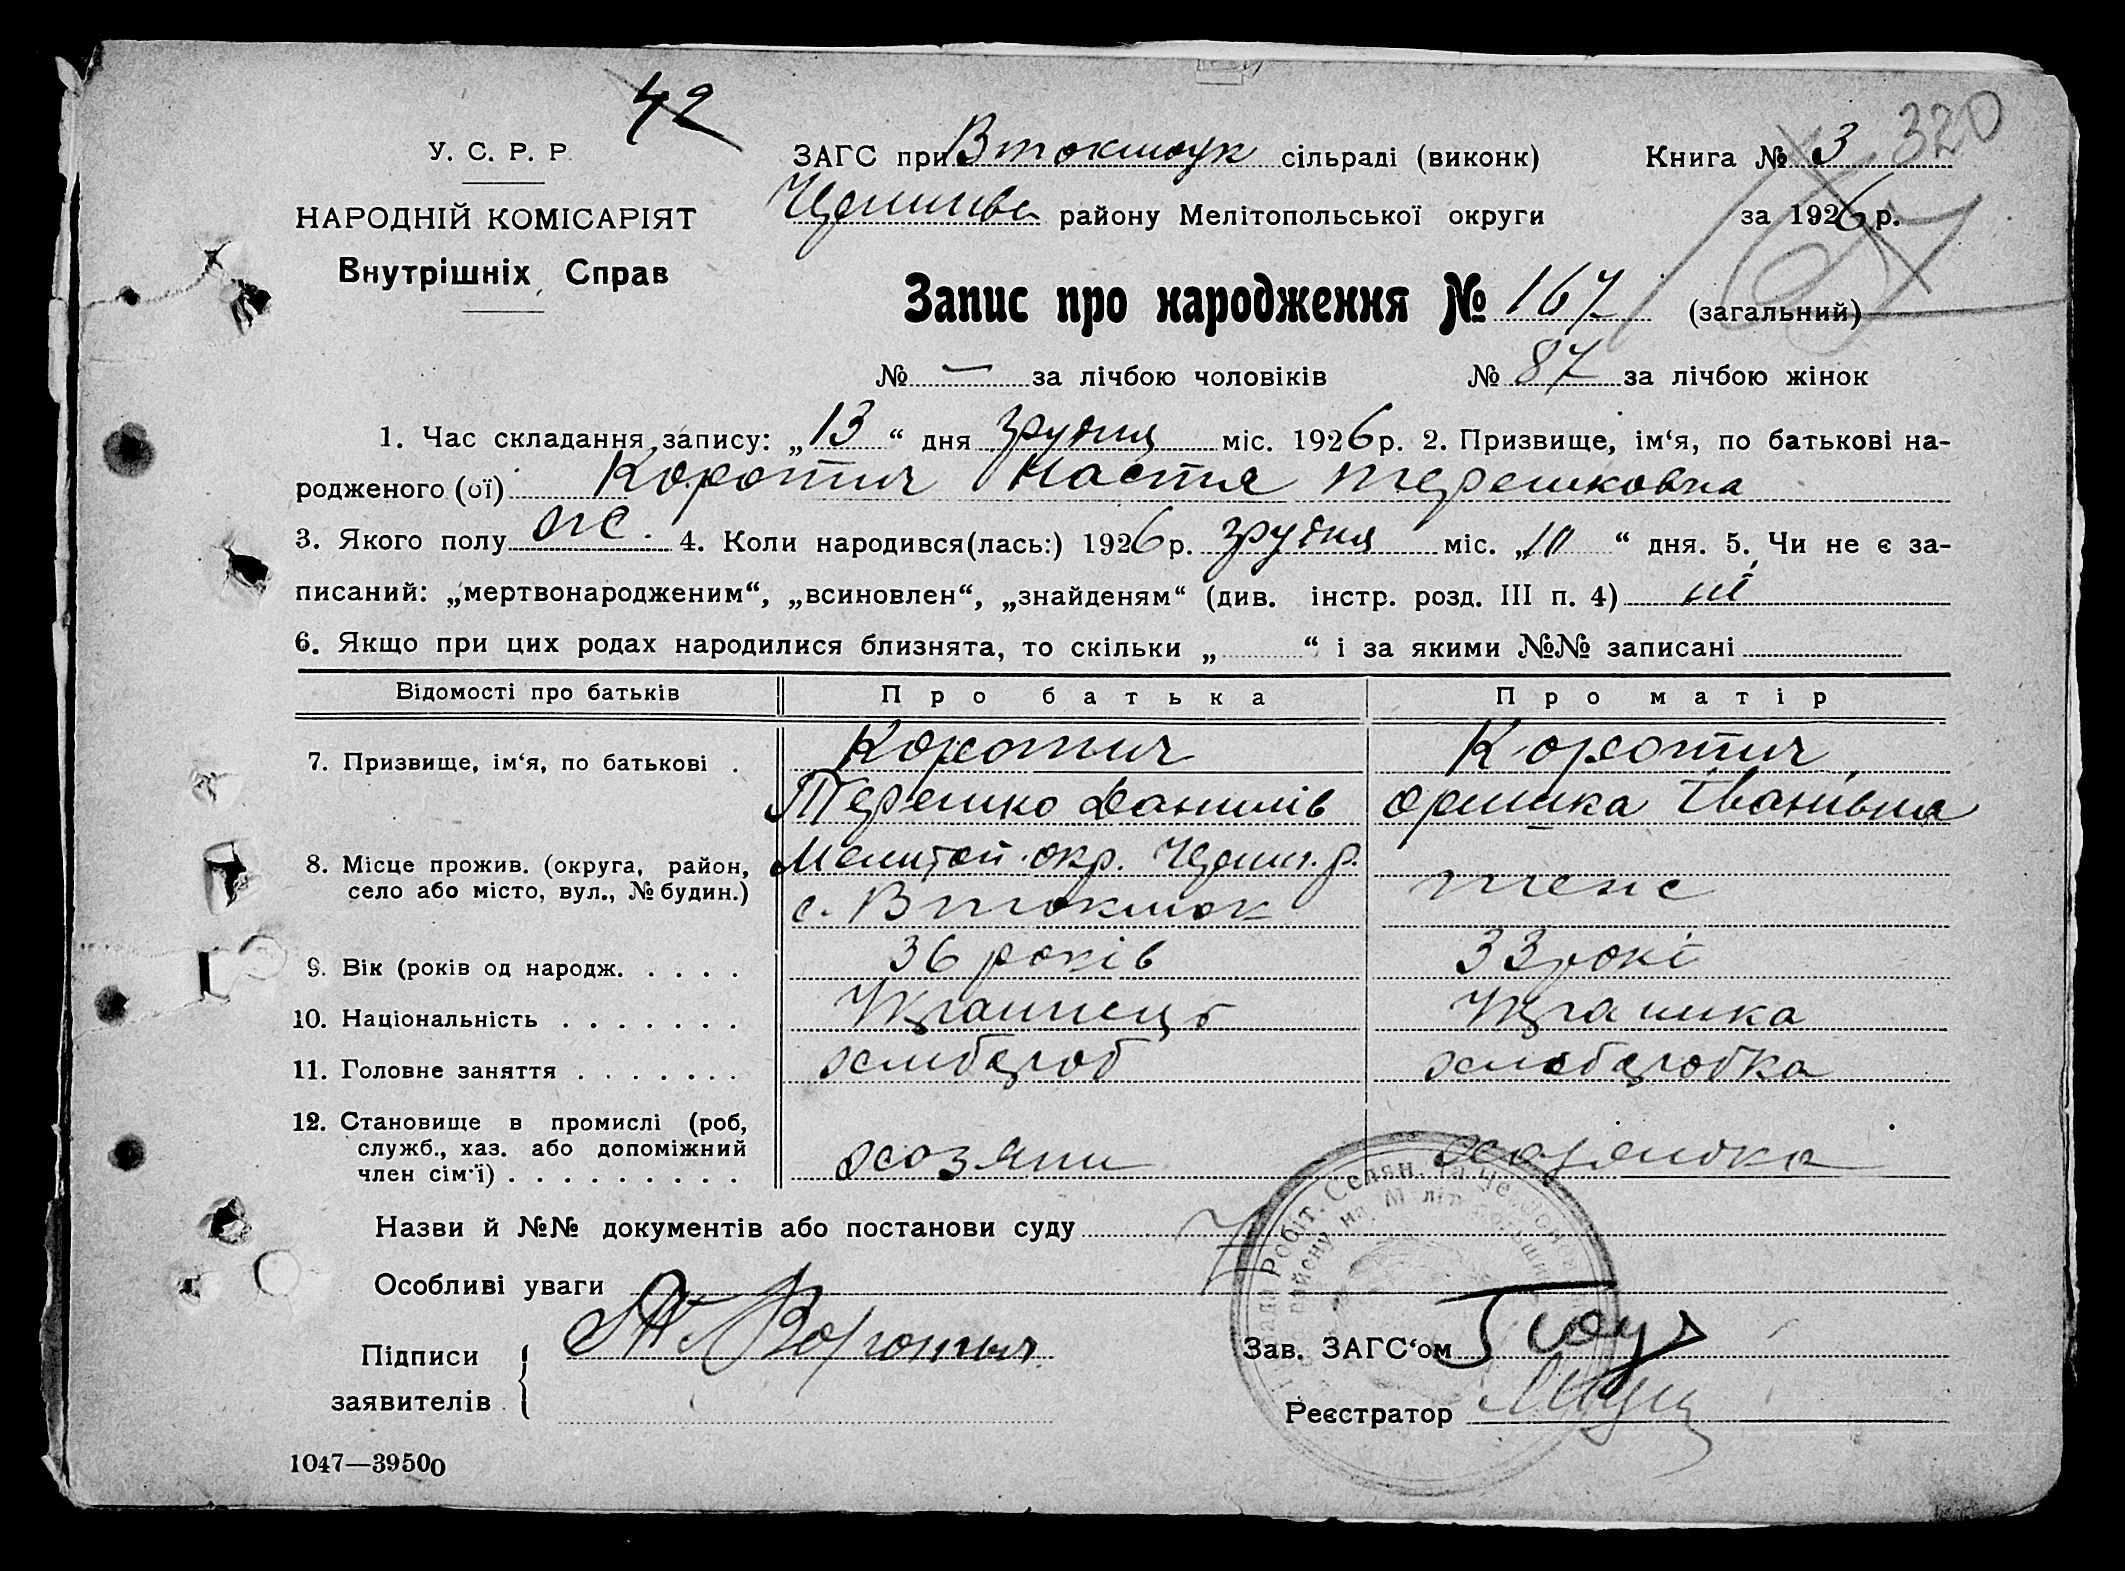 42
У. С. Р. Р.
НАРОДНІЙ КОМІСАРІЯТ
Внутрішніх Справ
ЗАГС при Втокмоук сільраді (виконк)
району Мелітопольської округи
Книга № 3
320
за 1926 р.
167
Запис про народження № 167 (загальний)
№ — за лічбою чоловіків № 87 за лічбою жінок
1. Час складання запису: „13“ дня грудня міс. 1926 р. 2. Призвище, ім‘я, по батькові на-
родженого (ої) Коротич Настя Терешковна
3. Якого полу жс. 4. Коли народився(лась:) 1926 р. грудня міс. „10“ дня. 5. Чи не є за-
писаний: „мертвонародженим“, „всиновлен“, „знайденям“ (див. інстр. розд. III п. 4) ні
6. Якщо при цих родах народилися близнята, то скільки „ “ і за якими №№ записані
Відомості про батьків Про батька Про матір
7. Призвище, ім‘я, по батькові . Коротич Коротич
Терешко Данилів Оришка Іванівна
8. Місце прожив. (округа, район, село або місто, вул., № будин.) Мелитоп. окр. р.
с. Втокмок теж
9. Вік (років од народж. . . . . 36 років 33 рокі
10. Національність . . . . . . . Украинець Украинка
11. Головне заняття . . . . . . . хлибороб хлеборобка
12. Становище в промислі (роб, служб., хаз. або допоміжний член сім‘ї) . . . . . . . . . хозяин хозяйка
Назви й №№ документів або постанови суду
Особливі уваги
Підписи заявителів { Коротыч
Зав. ЗАГС‘ом
Реєстратор
1047—39500